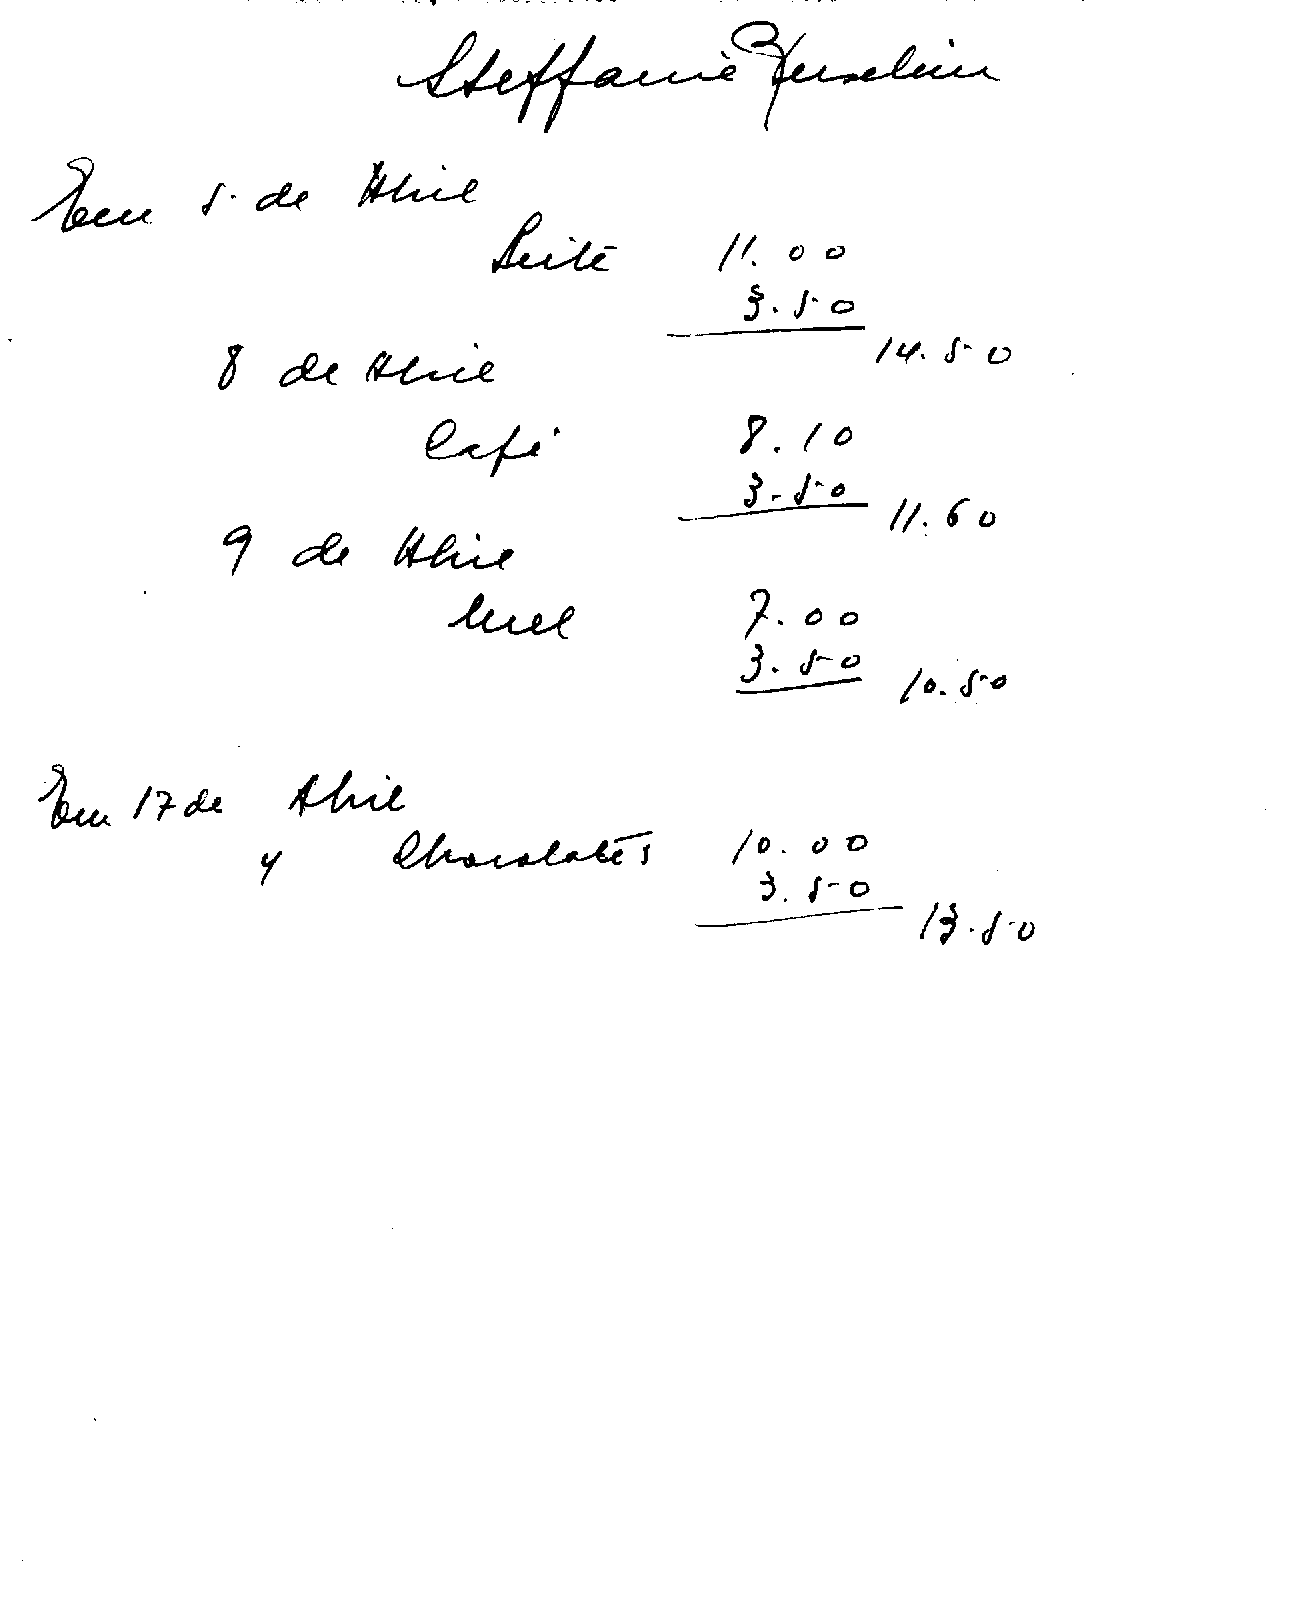 Steffanie
Em 5 de Abril
Leite 11.00
3.50
14.50
8 de Abril
Café 8.10
3.50
11.60
9 de Abril
Mel 7.00
3.50
10.50
Em 17 de Abril
4 Chocolates 10.00
3.50
13.50